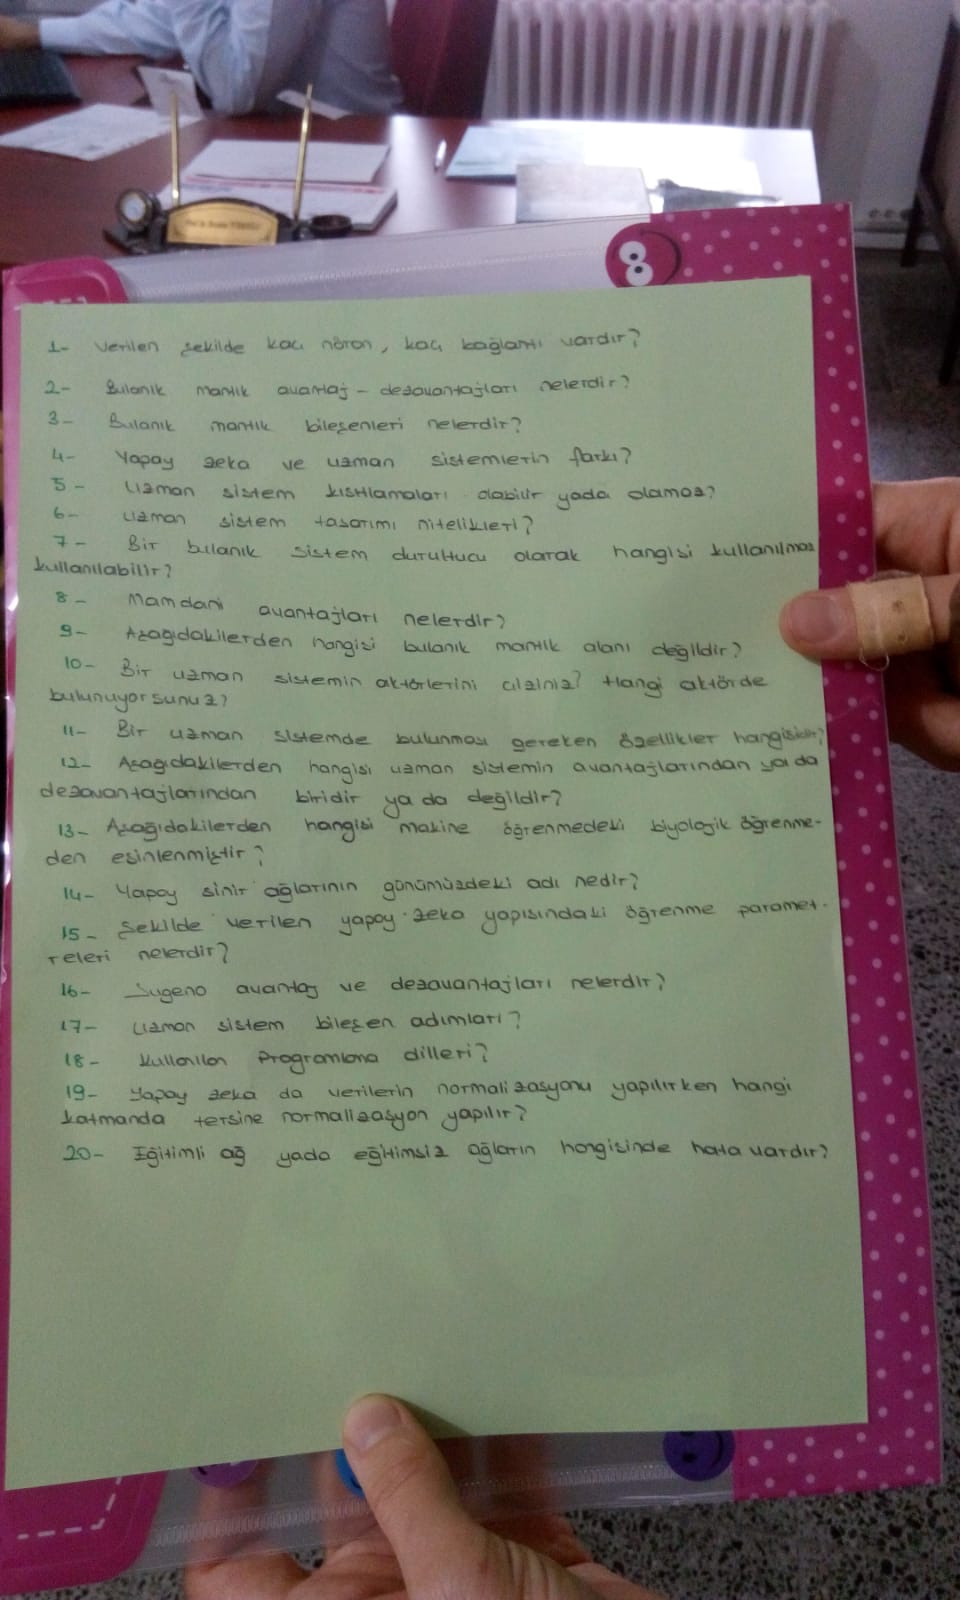 1- Verilen şekilde kaç nöron, kaç bağlantı vardır?
2- Bulanık mantık avantaj - dezavantajları nelerdir?
3- Bulanık mantık bileşenleri nelerdir?
4- Yapay zeka ve uzman sistemlerin farkı?
5- Uzman sistem kısıtlamaları olabilir yada olamaz?
6- Uzman sistem tasarımı nitelikleri?
7- Bir bulanık sistem durultucu olarak hangisi kullanılmaz
kullanılabilir?
8- Mamdani avantajları nelerdir?
9- Aşağıdakilerden hangisi bulanık mantık alanı değildir?
10- Bir uzman sistemin aktörlerini çiziniz? Hangi aktörde
bulunuyorsunuz?
11- Bir uzman sistemde bulunması gereken özellikler hangisidir?
12- Aşağıdakilerden hangisi uzman sistemin avantajlarından ya da
dezavantajlarından biridir ya da değildir?
13- Aşağıdakilerden hangisi makine öğrenmedeki biyolojik öğrenme-
den esinlenmiştir?
14- Yapay sinir ağlarının günümüzdeki adı nedir?
15- Şekilde verilen yapay zeka yapısındaki öğrenme paramet-
releri nelerdir?
16- Sugeno avantaj ve dezavantajları nelerdir?
17- Uzman sistem bileşen adımları?
18- Kullanılan Programlama dilleri?
19- Yapay zeka da verilerin normalizasyonu yapılırken hangi
katmanda tersine normalizasyon yapılır?
20- Eğitimli ağ yada eğitimsiz ağların hangisinde hata vardır?